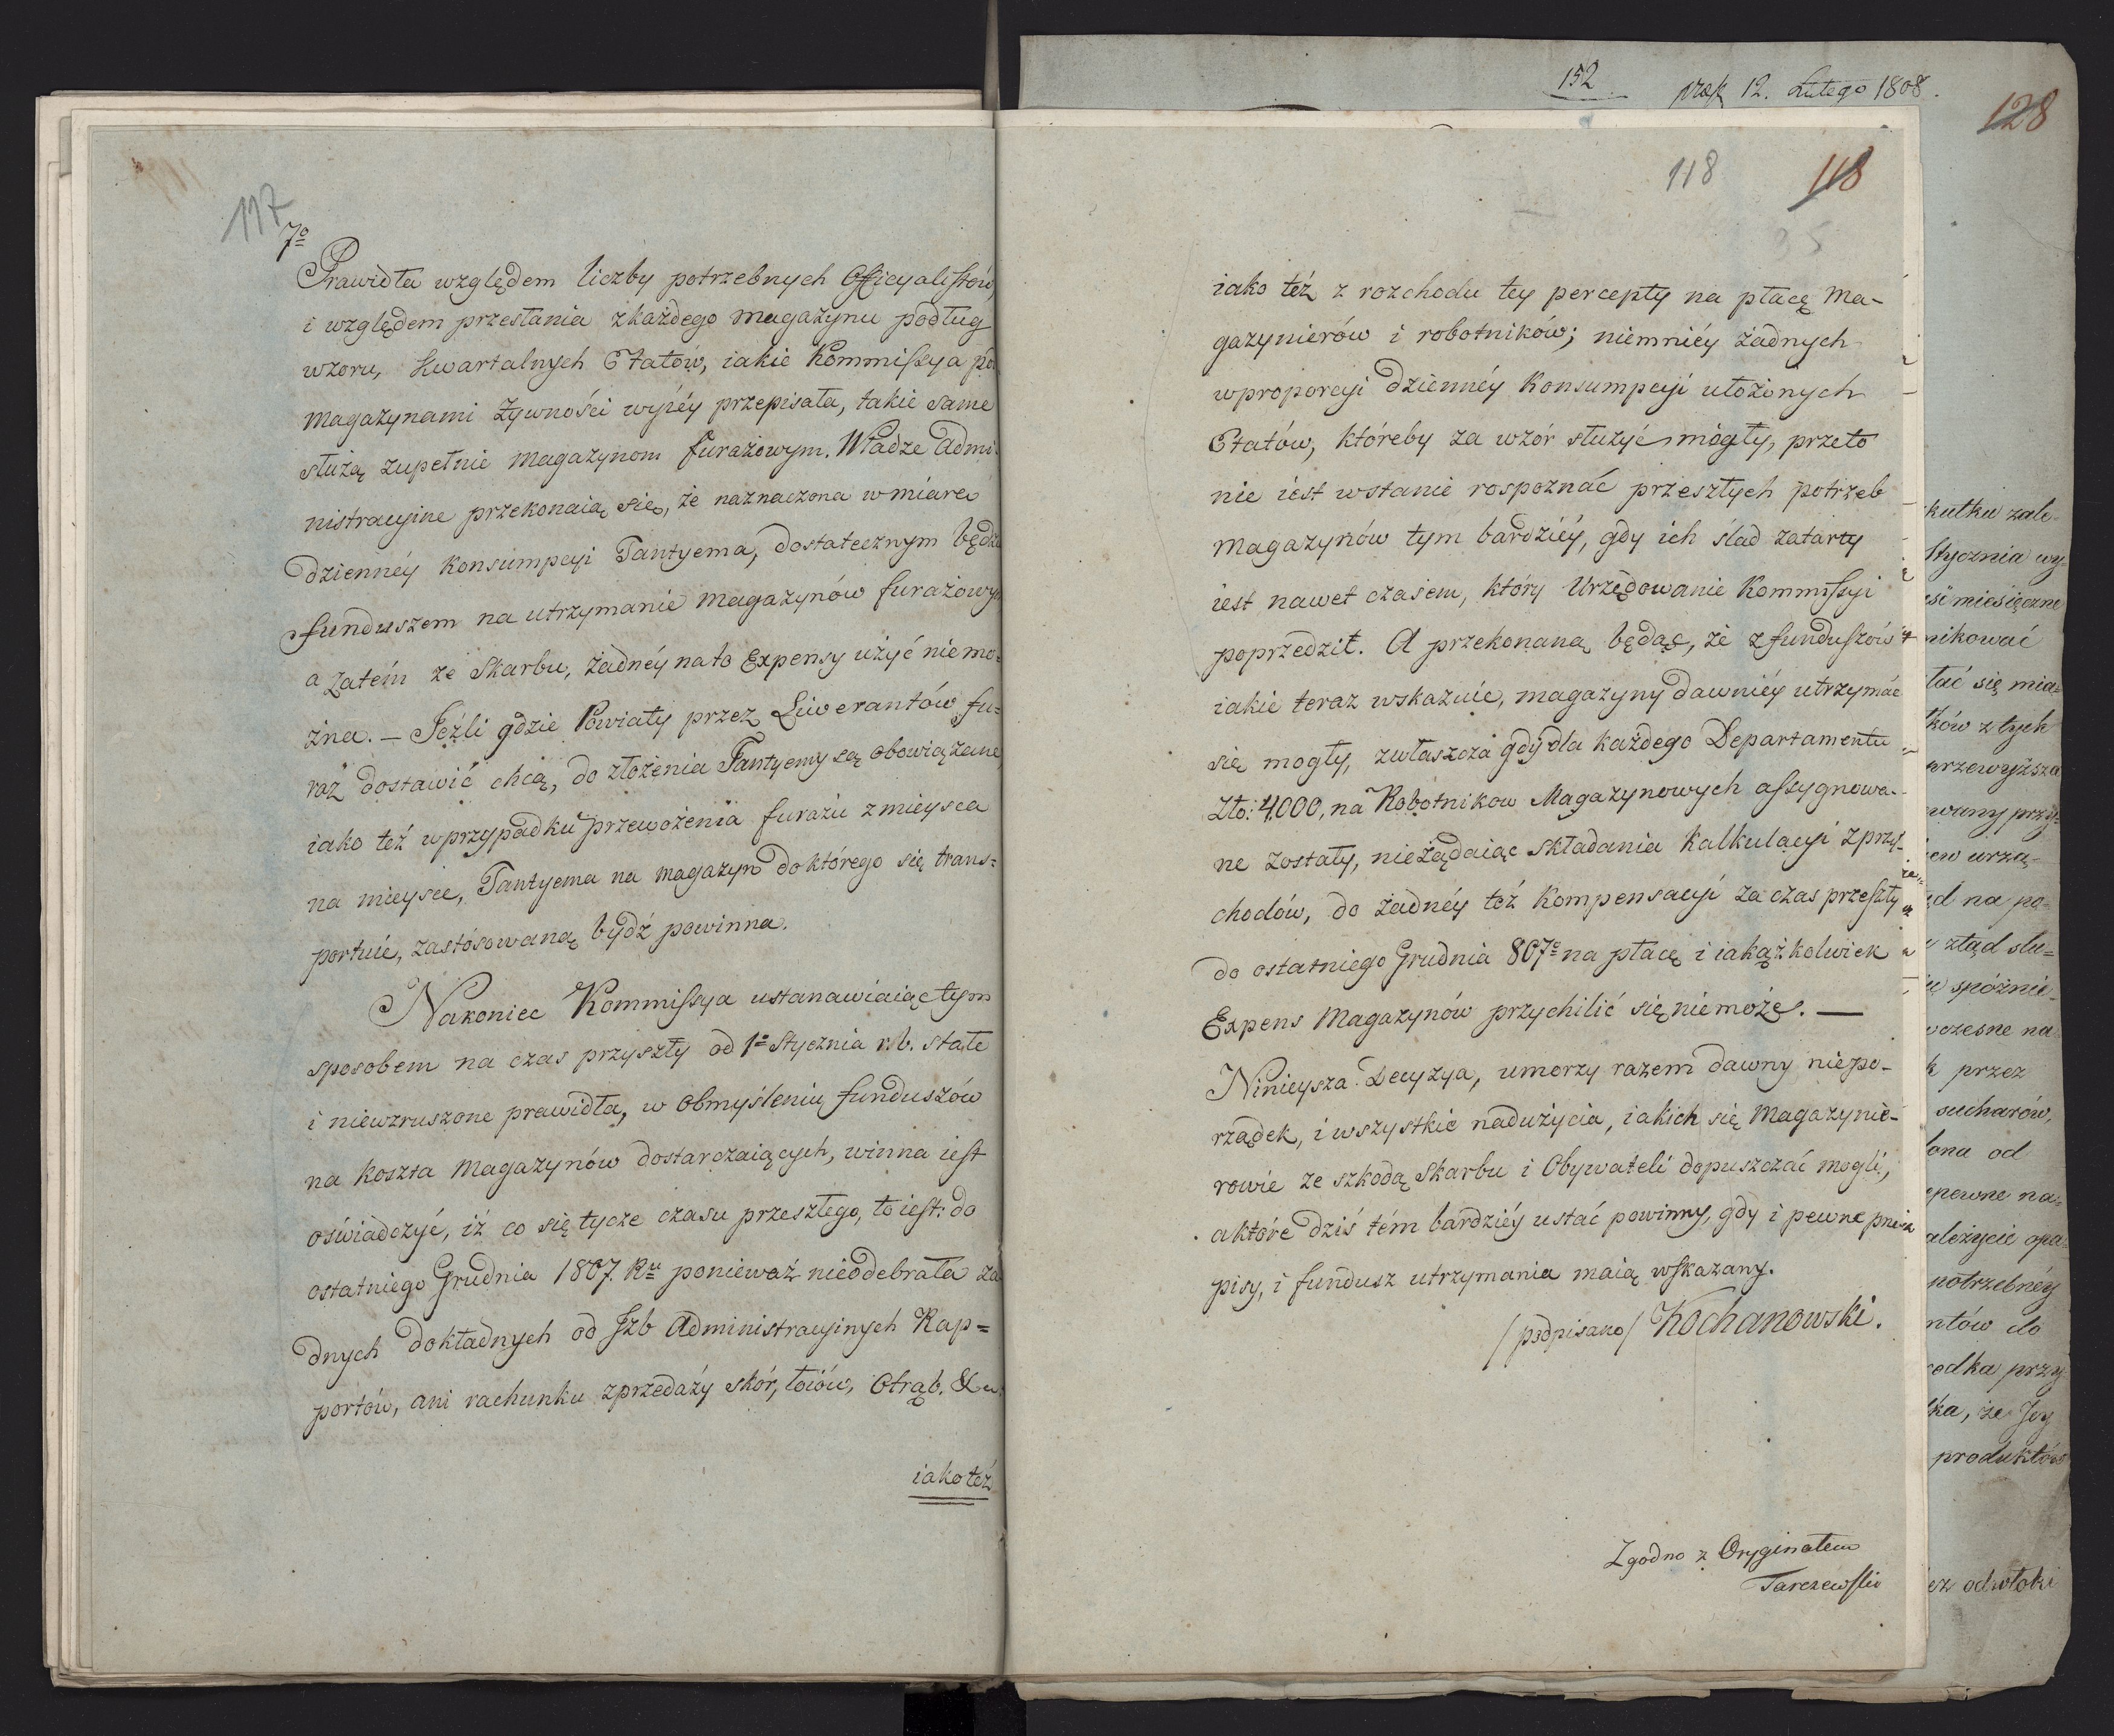 117
7o
Prawidła względem liczby potrzebnych Officyalistów,
i względem przesłania zkażdego magazynu podług
wzoru, kwartalnych Etatów, iakie Kommissya po
magazynami żywności wyżéy przepisała, takie same
służą zupełnie magazynom furażowym. Władze Admi
nistracyine przekonaią się, że naznaczona w miarę
dziennéy konsumpcyi Tantyema, dostatecznym będzie
funduszem na utrzymanie magazynów furażowy
a zatém ze Skarbu, żadnéy na to Expensy użyć niemo=
żna. — Jeźli gdzie Powiaty przez Liwerantów fu=
raż dostawić chcą, do złożenia Tantyemy są obowiązane,
iako też w przypadku przewożenia furażu z mieysca
na mieysce, Tantyema na magazyn do którego się trans=
portuie, zastósowaną bydź powinna.
Nakoniec Kommissya ustanawiaiąc tym
sposobem na czas przyszły od 1o Stycznia r.b. stałe
i niewzruszone prawidła, w obmyśleniu funduszów
na koszta magazynów dostarczaiących, winna iest
oświadczyć, iż co się tycze czasu przeszłego, to iest: do
ostatniego Grudnia 1807. Ru ponieważ nieodebrała ża
dnych dokładnych od Izb Administracyinych Rap=
portów, ani rachunku zprzedaży skór, łoiów, Otrąb. &
iako też
118 118
35
iako też z rozchodu tey percepty na płacę Ma-
gazynierów i robotników; niemniéy żadnych
wproporcyi dziennéy Konsumpcyi ułożonych
Etatów, któreby za wzór służyć mogły, przeto
nie iest wstanie rospoznać przeszłych potrzeb
magazynów tym bardziéy, gdy ich ślad zatarty
iest nawet czasem, który Urzędowanie Kommissyi
poprzedził. A przekonaną będąc, że z funduszów
iakie teraz wskazuie, magazyny dawniéy utrzymać
się mogły, zwłaszcza gdy dla każdego Departamentu
Zło: 4000, na Robotnikow Magazynowych assygnowa-
ne zostały, nieżądaiąc składania Kalkulacyi z przy-
chodów, do żadnéy też Kompensacyi za czas przeszły
do ostatniego Grudnia 807o na płacę i iakążkolwiek
Expens Magazynów przychilić się niemoże. —
Ninieysza Decyzya, umorzy razem dawny niepo-
rządek, i wszystkie nadużycia, iakich się Magazynie-
rowie ze szkodą Skarbu i Obywateli dopuszczać mogli,
a które dziś tém bardziéy ustać powinny, gdy i pewne prze
pisy, i fundusz utrzymania maią wskazany.
/podpisano/ Kochanowski.
Zgodno z Oryginałem
Tarczewski
152 12. Lutego 1808.
128
kutku zale-
Stycznia wy-
miesięczne
nikować
tać się mia-
ków z tych
przewyższa
wany przy-
iew urzą-
d na po-
ztąd słu=
spóźnie-
wczesne na
przez
sucharów,
ona od
pewne na=
ależycie opa-
potrzebnéy
ntów do
odka przy
ka, że Jey
produktów
ez odwłoki